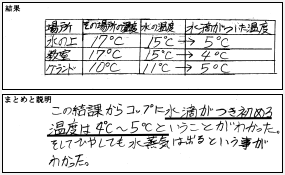 結果
場所 その場所の温度 水の温度 水滴がついた温度
水の上 17℃ 15℃ → 5℃
教室 17℃ 15℃ → 4℃
グランド 10℃ 11℃ → 5℃
まとめと説明
この結課からコップに水滴がつき初める
温度は4℃～5℃ということがわかった。
そしてひやしても水蒸気は出るという事が
わかった。